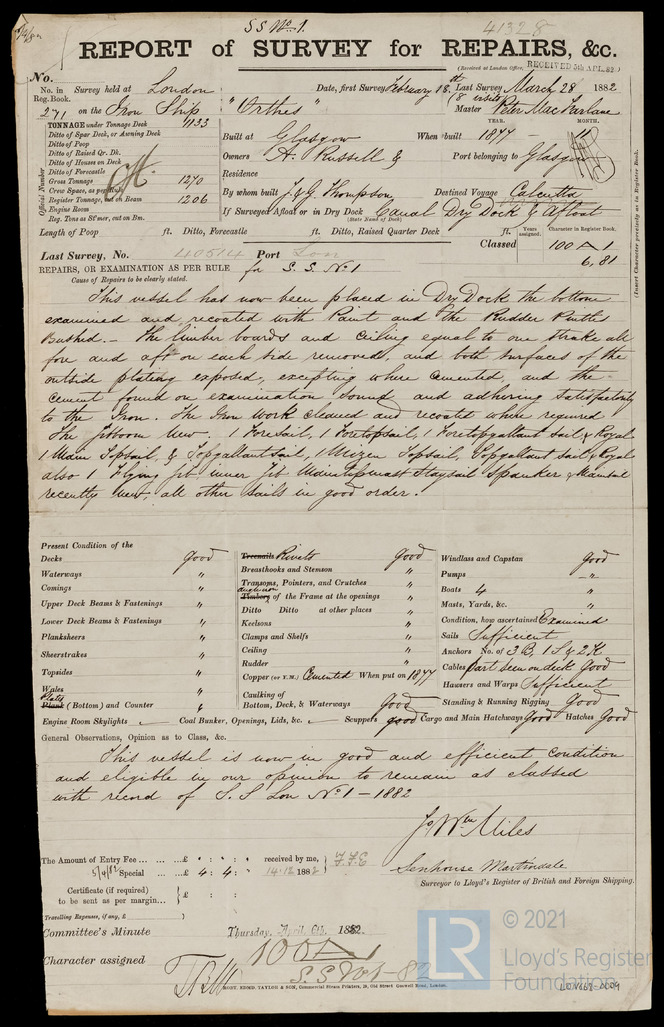 S S No. 1.
41328
REPORT of SURVEY for REPAIRS, &c.
(Received at London Office, RECEIVED 5th APL. 82)
No.
No. in Reg. Book. Survey held at London Date, first Survey February 18th Last Survey March 28 1882
(8 visits)
271 on the Iron Ship "Orthes" Master Peter MacFarlane
TONNAGE under Tonnage Deck 1133
YEAR. MONTH.
Ditto of Spar Deck, or Awning Deck
Built at Glasgow When built 1877 - 11
Ditto of Poop
Ditto of Raised Qr. Dk.
Owners A. Russell & Port belonging to Glasgow
Ditto of Houses on Deck
Ditto of Forecastle
Residence
Gross Tonnage 1270
Crew Space, as per Rule
By whom built J. & G. Thompson Destined Voyage Calcutta
Register Tonnage, cut on Beam 1206
Engine Room
If Surveyed Afloat or in Dry Dock Canal Dry Dock & Afloat
(State Name of Dock)
Reg. Tons as St'mer, cut on Bm.
Official Number
Length of Poop ft. Ditto, Forecastle ft. Ditto, Raised Quarter Deck ft.
Years assigned. Character in Register Book.
Classed 100 A 1
6,81
(Insert Character precisely as in Register Book.
Last Survey, No. 40514 Port Lon
REPAIRS, OR EXAMINATION AS PER RULE for S. S. No 1
Cause of Repairs to be clearly stated.
This vessel has now been placed in Dry Dock the bottom
examined and recoated with Paint and the Rudder Pintles
Bushed. - The limber boards and ceiling equal to one strake all
fore and aft on each side removed, and both surfaces of the
outside plating exposed, excepting where cemented, and the
cement found on examination sound and adhering satisfactorily
to the Iron. The Iron work cleaned and recoated where required
The Jibboom New. 1 Foresail, 1 Foretopsail, 1 Foretopgallant sail & Royal
1 Main Topsail, & Topgallantsail, 1 Mizen Topsail, Topgallant sail & Royal
also 1 Flying jib inner Jib Maintopmast Staysail Spanker & Mainsail
recently New, all other sails in good order.
Present Condition of the
Decks Good
Waterways "
Comings "
Upper Deck Beams & Fastenings "
Lower Deck Beams & Fastenings "
Planksheers "
Sheerstrakes "
Topsides "
Wales "
Plates
Plank (Bottom) and Counter "
Treenails Rivets Good
Breasthooks and Stemson "
Transoms, Pointers, and Crutches "
Timbers of the Frame at the openings "
Ditto Ditto at other places "
Keelsons "
Clamps and Shelfs "
Ceiling "
Rudder "
Copper (or Y.M.) Cemented When put on 1877
Caulking of
Bottom, Deck, & Waterways Good
Windlass and Capstan Good
Pumps "
Boats 4 "
Masts, Yards, &c. "
Condition, how ascertained Examined
Sails Sufficient
Anchors No. of 3 B, 1 S & 2 K
Cables part seen on deck Good
Hawsers and Warps Sufficient
Standing & Running Rigging Good
Engine Room Skylights Coal Bunker, Openings, Lids, &c. Scuppers good Cargo and Main Hatchways Good Hatches Good
General Observations, Opinion as to Class, &c.
This vessel is now in good and efficient condition
and eligible in our opinion to remain as classed
with record of S. S Lon No 1 - 1882
Jo Wm Miles
The Amount of Entry Fee ... ... ... £ : : received by me,
5/4/82 Special ... £ 4 : 4 : 14.12 1882
Senhouse Martindale
Surveyor to Lloyd's Register of British and Foreign Shipping.
Certificate (if required)
to be sent as per margin... £ :
Travelling Expenses, if any, £
Committee's Minute Thursday, April 6th, 1882.
Character assigned 100 A 1
S.S No 1-82
ROBT. EDMD. TAYLOR & SON, Commercial Steam Printers, 19, Old Street Goswell Road, London.
LR
© 2021
Lloyd's Register
Foundation
LON662-0009